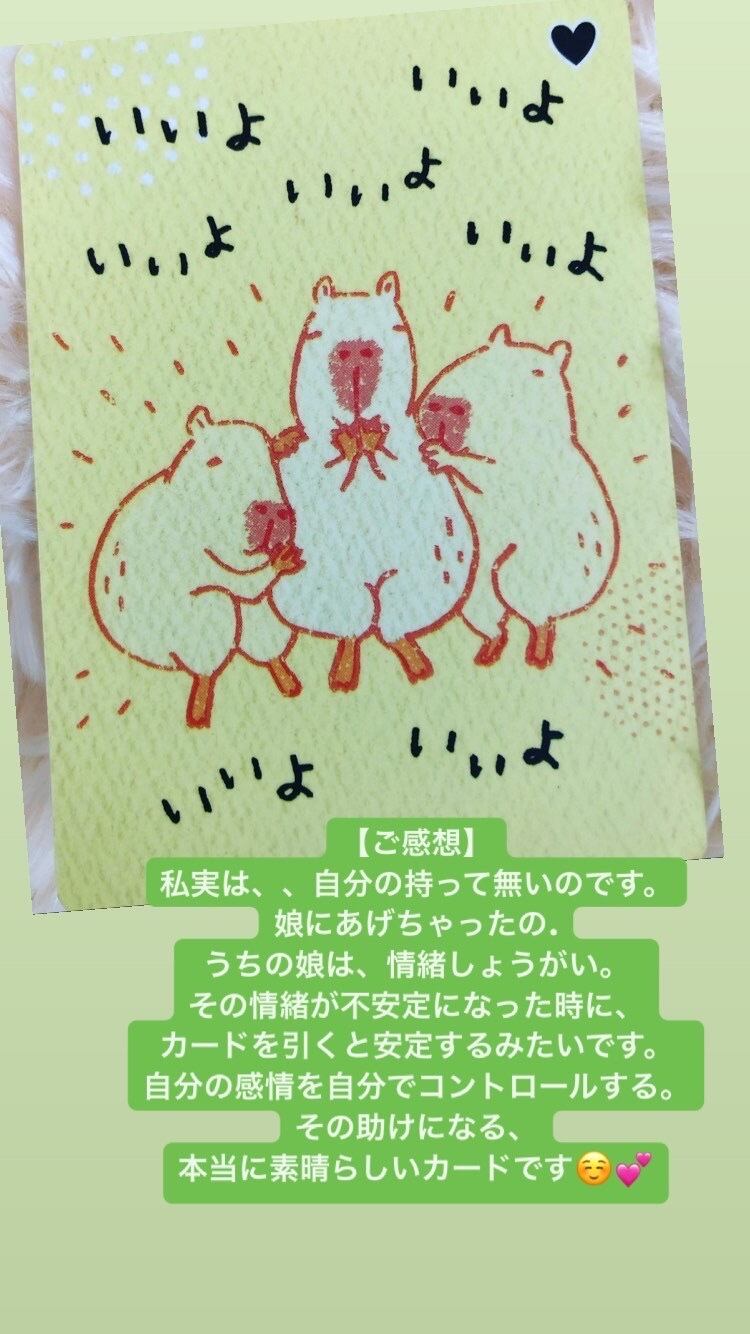 いいよ
いいよ
いいよ
いいよ
いいよ
いいよ
いいよ
【ご感想】
私実は、、自分の持って無いのです。
娘にあげちゃったの.
うちの娘は、情緒しょうがい。
その情緒が不安定になった時に、
カードを引くと安定するみたいです。
自分の感情を自分でコントロールする。
その助けになる、
本当に素晴らしいカードです☺️💕